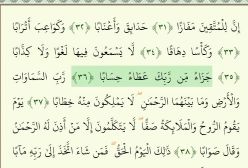 إِنَّ لِلْمُتَّقِينَ مَفَازًا ﴿٣١﴾ حَدَائِقَ وَأَعْنَابًا ﴿٣٢﴾ وَكَوَاعِبَ أَتْرَابًا
﴿٣٣﴾ وَكَأْسًا دِهَاقًا ﴿٣٤﴾ لَّا يَسْمَعُونَ فِيهَا لَغْوًا وَلَا كِذَّابًا
﴿٣٥﴾ جَزَاءً مِّن رَّبِّكَ عَطَاءً حِسَابًا ﴿٣٦﴾ رَّبِّ السَّمَاوَاتِ
وَالْأَرْضِ وَمَا بَيْنَهُمَا الرَّحْمَٰنِ ۖ لَا يَمْلِكُونَ مِنْهُ خِطَابًا ﴿٣٧﴾ يَوْمَ
يَقُومُ الرُّوحُ وَالْمَلَائِكَةُ صَفًّا ۖ لَّا يَتَكَلَّمُونَ إِلَّا مَنْ أَذِنَ لَهُ الرَّحْمَٰنُ
وَقَالَ صَوَابًا ﴿٣٨﴾ ذَٰلِكَ الْيَوْمُ الْحَقُّ ۖ فَمَن شَاءَ اتَّخَذَ إِلَىٰ رَبِّهِ مَآبًا